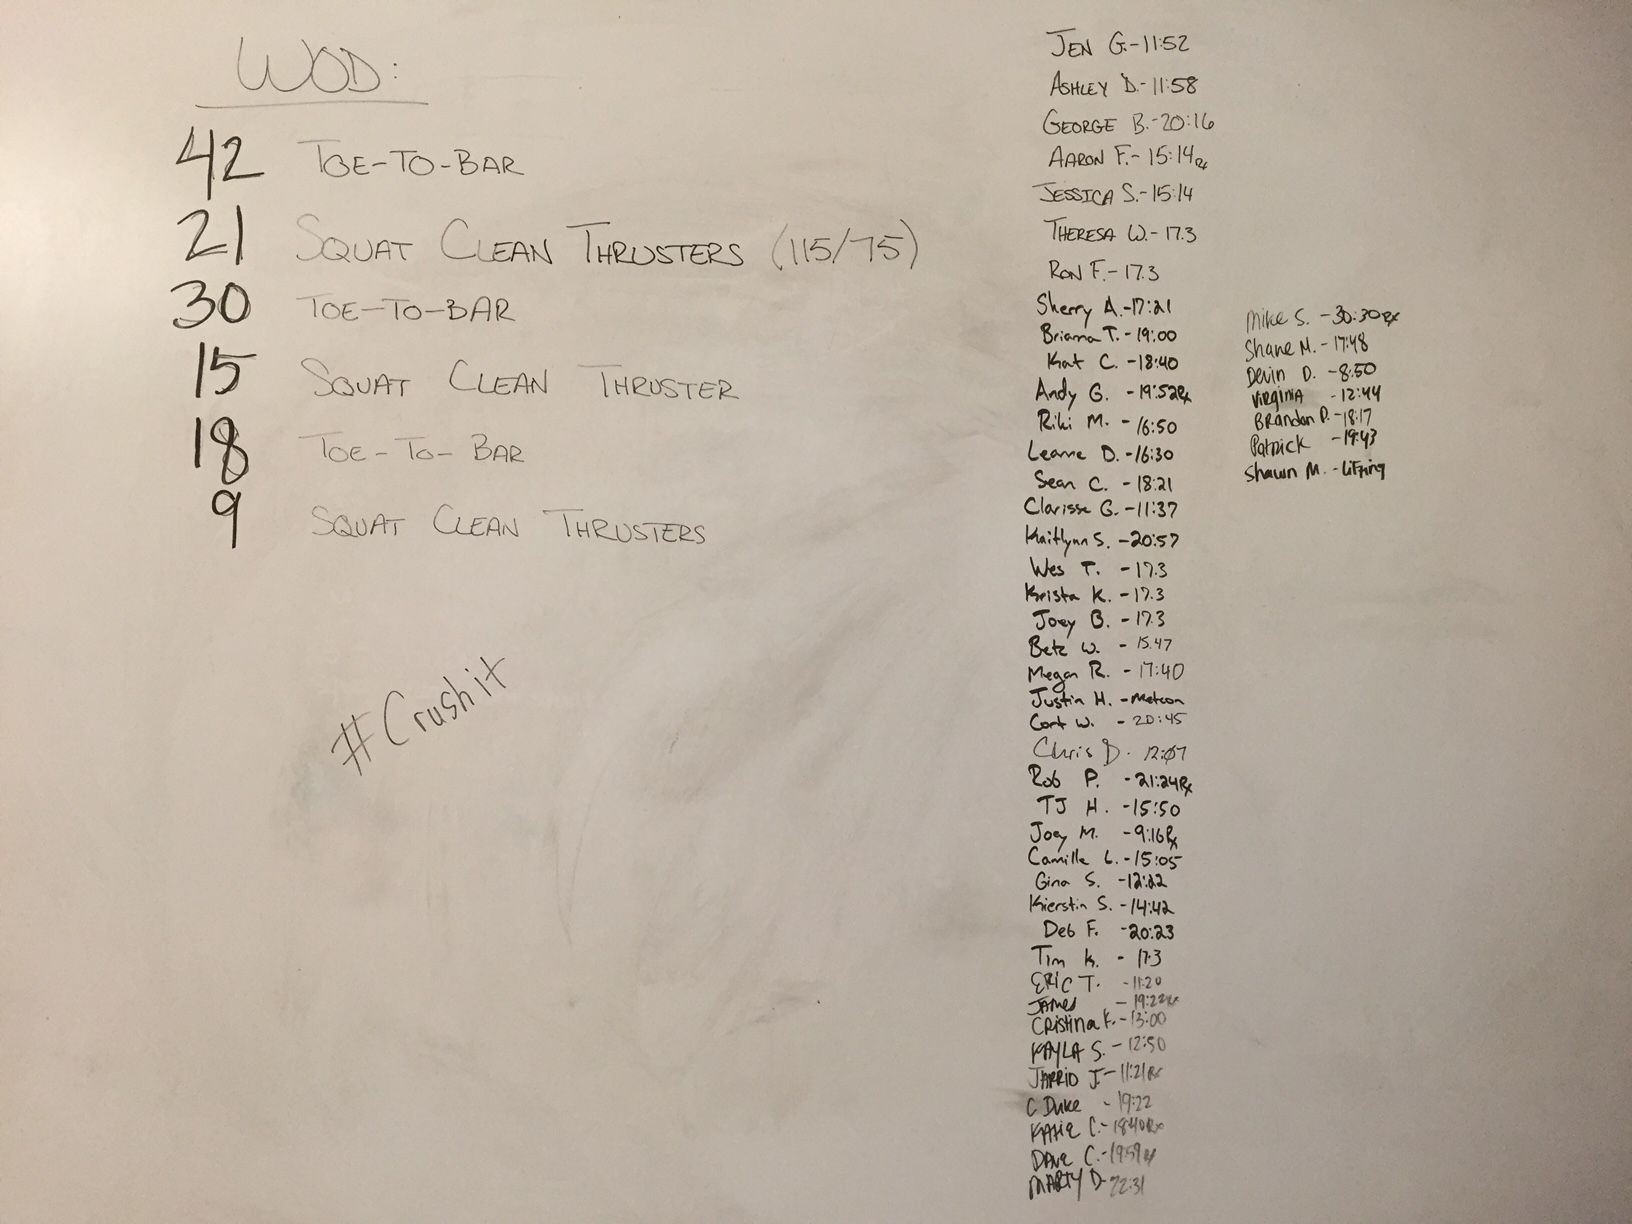 WOD:
42 TOE-TO-BAR
21 SQUAT CLEAN THRUSTERS (115/75)
30 TOE-TO-BAR
15 SQUAT CLEAN THRUSTER
18 TOE-TO-BAR
9 SQUAT CLEAN THRUSTERS
#Crushit
JEN G.-11:52
ASHLEY D.-11:58
GEORGE B.-20:16
AARON F.-15:14 Rx
JESSICA S.-15:14
THERESA W.-17.3
RON F.-17.3
Sherry A.-17:21
Brianna T.-19:00
Kat C. -18:40
Andy G. -19:52Rx
Riki M. -16:50
Leanne D. -16:30
Sean C. -18:21
Clarissa G. -11:37
Kaitlynn S. -20:57
Wes T. -17.3
Krista K. -17.3
Joey B. -17.3
Betz W. -15:47
Megan R. -17:40
Justin H. -metcon
Cort W. -20:45
Chris D. 12:07
Rob P. -21:24Rx
TJ H. -15:50
Joey M. -9:16Rx
Camille L. -15:05
Gina S. -12:22
Kierstin S. -14:42
Deb F. -20:23
Tim K. - 17.3
ERIC T. -11:20
JAMES - 19:22Rx
CRistina F. -13:00
KAYLA S. -12:50
JARRID J. -11:21Rx
C Duke - 19:22
KATIE C. -18:40Rx
DAVE C. -19:59Rx
MARTY D- 22:31
Mike S. -30:30Rx
Shane M. -17:48
Devin D. -8:50
VIRGINIA -12:44
BRandon P. -18:17
Patrick -19:43
Shawn M. -LiFting